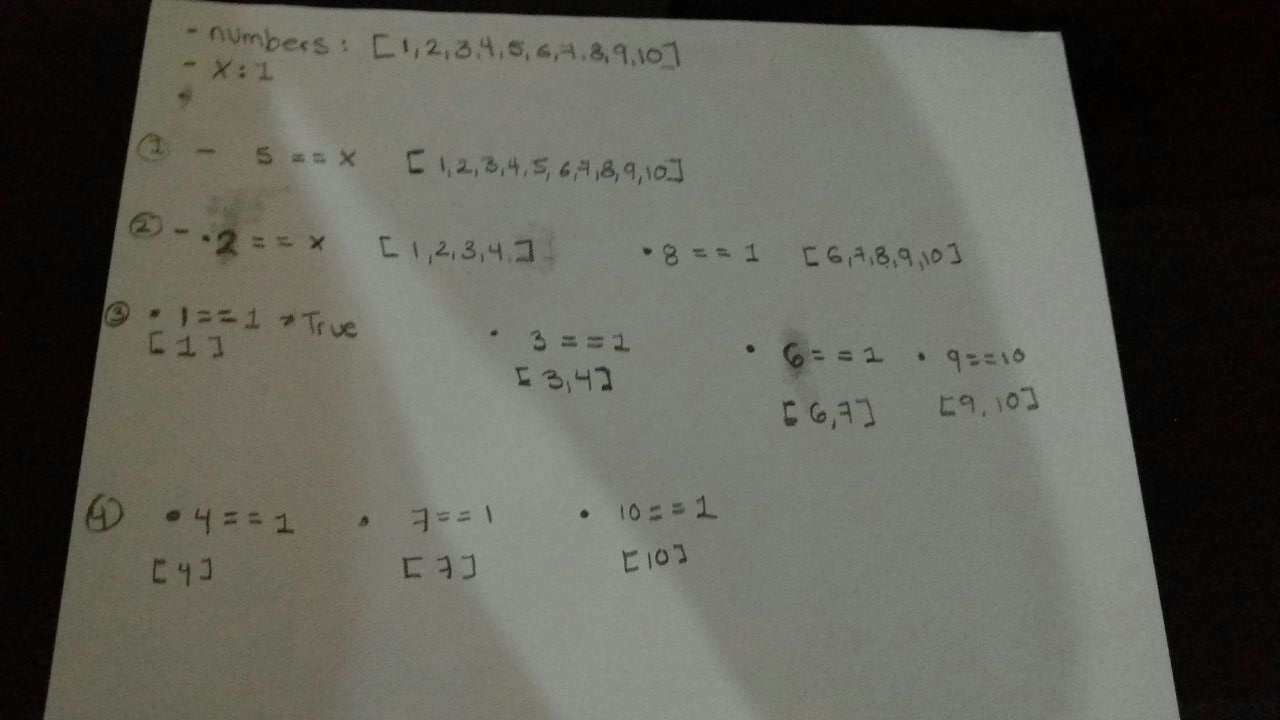 - numbers: [1,2,3,4,5,6,7,8,9,10]
- x:1
① - 5 == x [1,2,3,4,5,6,7,8,9,10]
② - •2 == x [1,2,3,4] •8 == 1 [6,7,8,9,10]
③ • 1==1 → True • 3 ==1 • 6==1 • 9==10
[1] [3,4] [6,7] [9,10]
④ •4==1 • 7==1 • 10==1
[4] [7] [10]